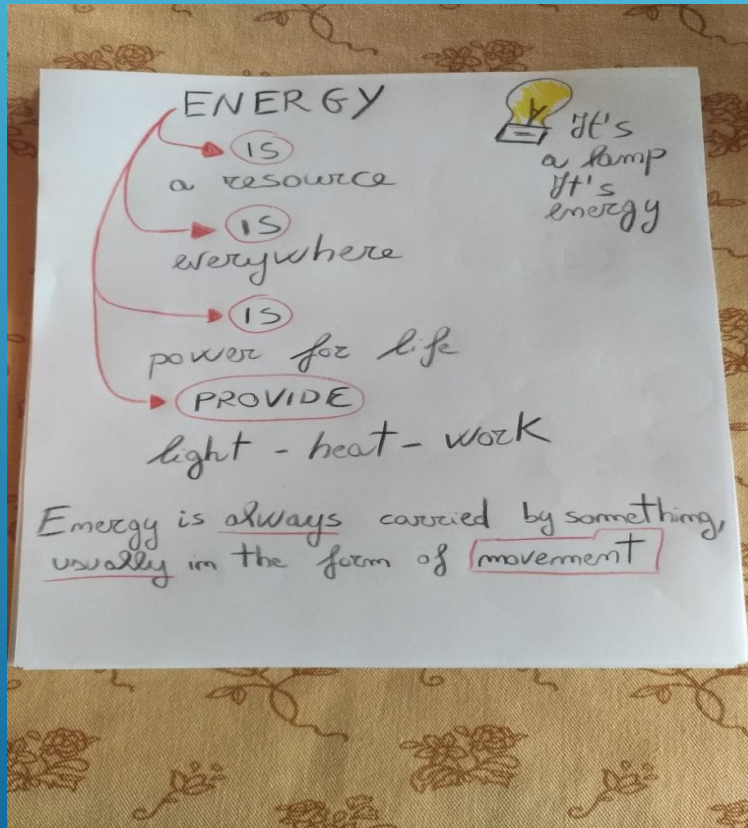 ENERGY
IS
a resource
IS
everywhere
IS
power for life
PROVIDE
light - heat - work
It's
a lamp
It's
energy
Energy is always carried by something,
usually in the form of movement